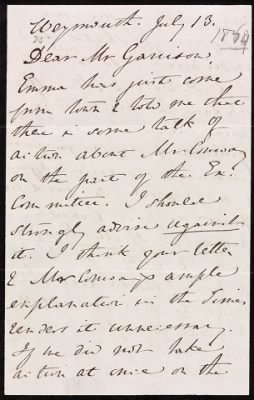 Weymouth. July 13.
1864
Dear Mr Garrison.
Emma has just come
from town & told me that
there is some talk of
action about Mr. Conway
on the part of the Ex.
Committee. I should
strongly advise against
it. I think your letter
& Mr Conway's ample
explanation in the Times
renders it unnecessary.
If we did not take
action at once on the